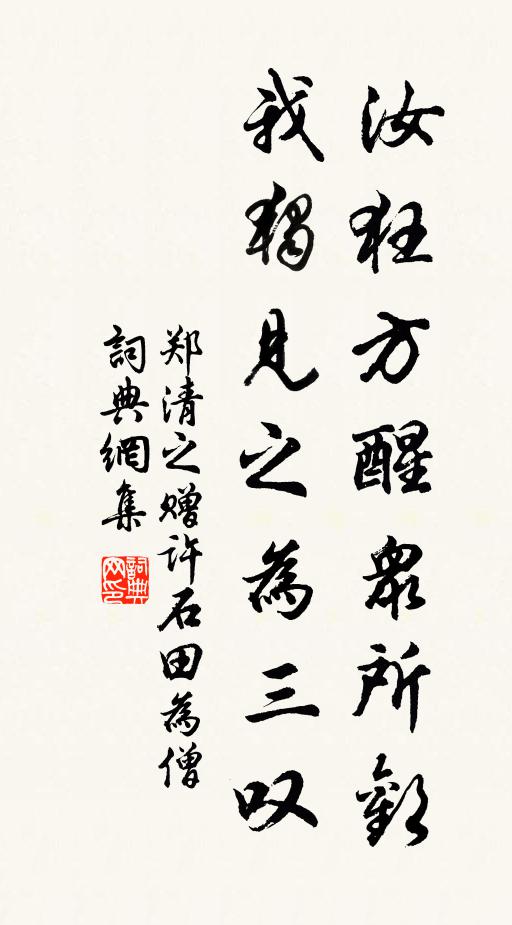 汝狂方醒眾所歡
我獨見之為三叹
郑清之赠许石田為僧
詞典網集
詞典网印